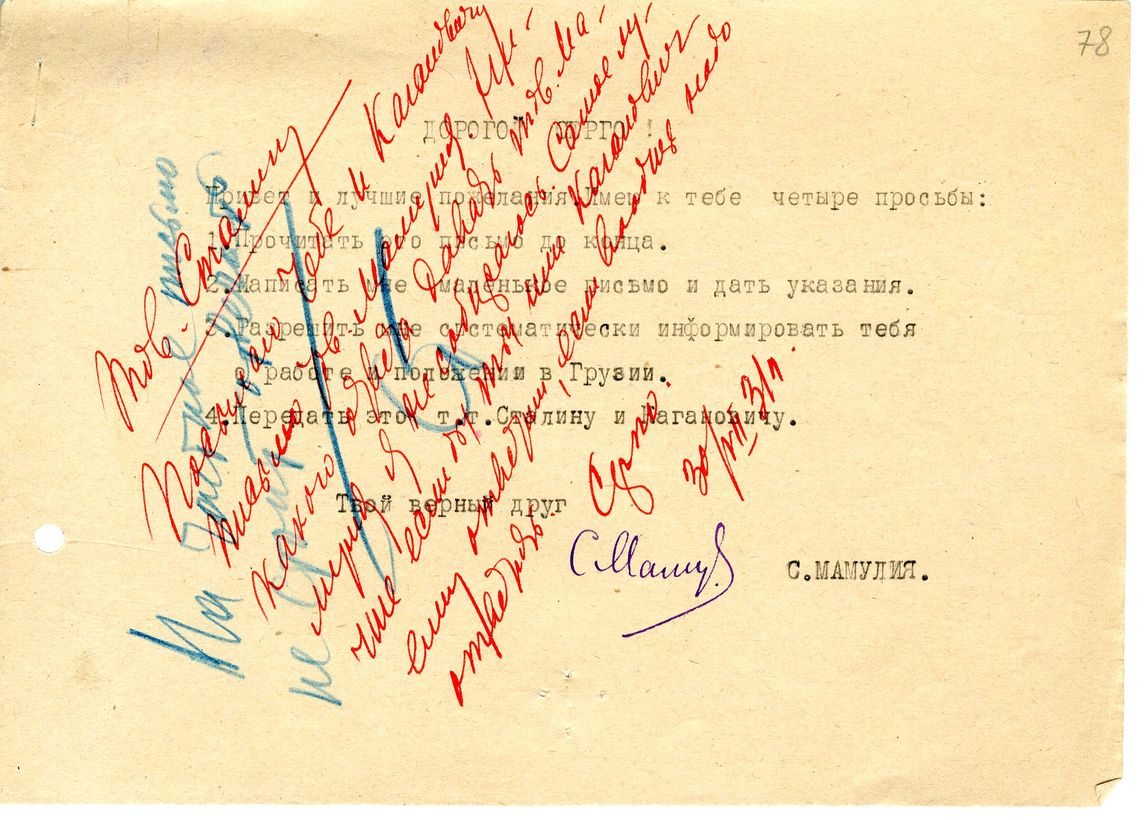 78
ДОРОГОЙ СЕРГО !
Привет и лучшие пожелания Имею к тебе четыре просьбы:
1.Прочитать это письмо до конца.
2.Написать мне маленькое письмо и дать указания.
3.Разрешить мне систематически информировать тебя
о работе и положении в Грузии.
4.Передать это т.т.Сталину и Кагановичу.
Твой верный друг
С.МАМУЛИЯ.
Тов. Сталину
Посылаю тебе и Кагановичу
письмо тов. Мамулия. Ни-
какого ответа давать тов. Ма-
мулия я не собираюсь. Самое лу-
чшее если бы ты или Каганович
ему ответили,
Серго.
30/VIII 31 г.
На частное письмо
не